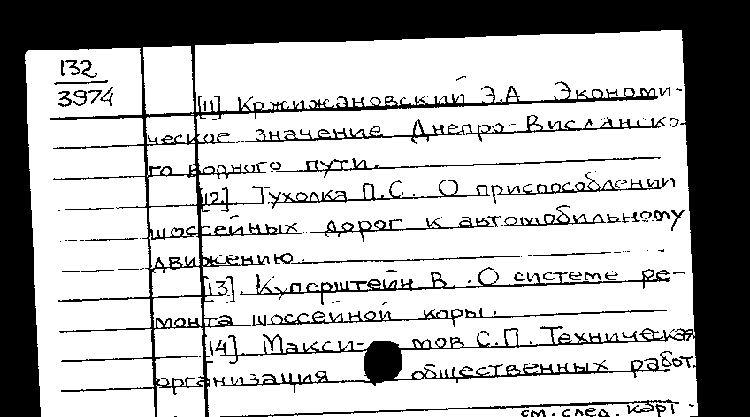 132
3974
[11] Кржижановский Э.А Экономи-
ческое значение Днепро-Вислянско-
го водного пути.
[12] Тухолка П.С. О приспособлении
шоссейных дорог к автомобильному
движению.
[13]. Куперштейн В. О системе ре-
монта шоссейной коры.
[14]. Макси- мов С.П. Техническая
организация общественных работ.
см. след. карт.